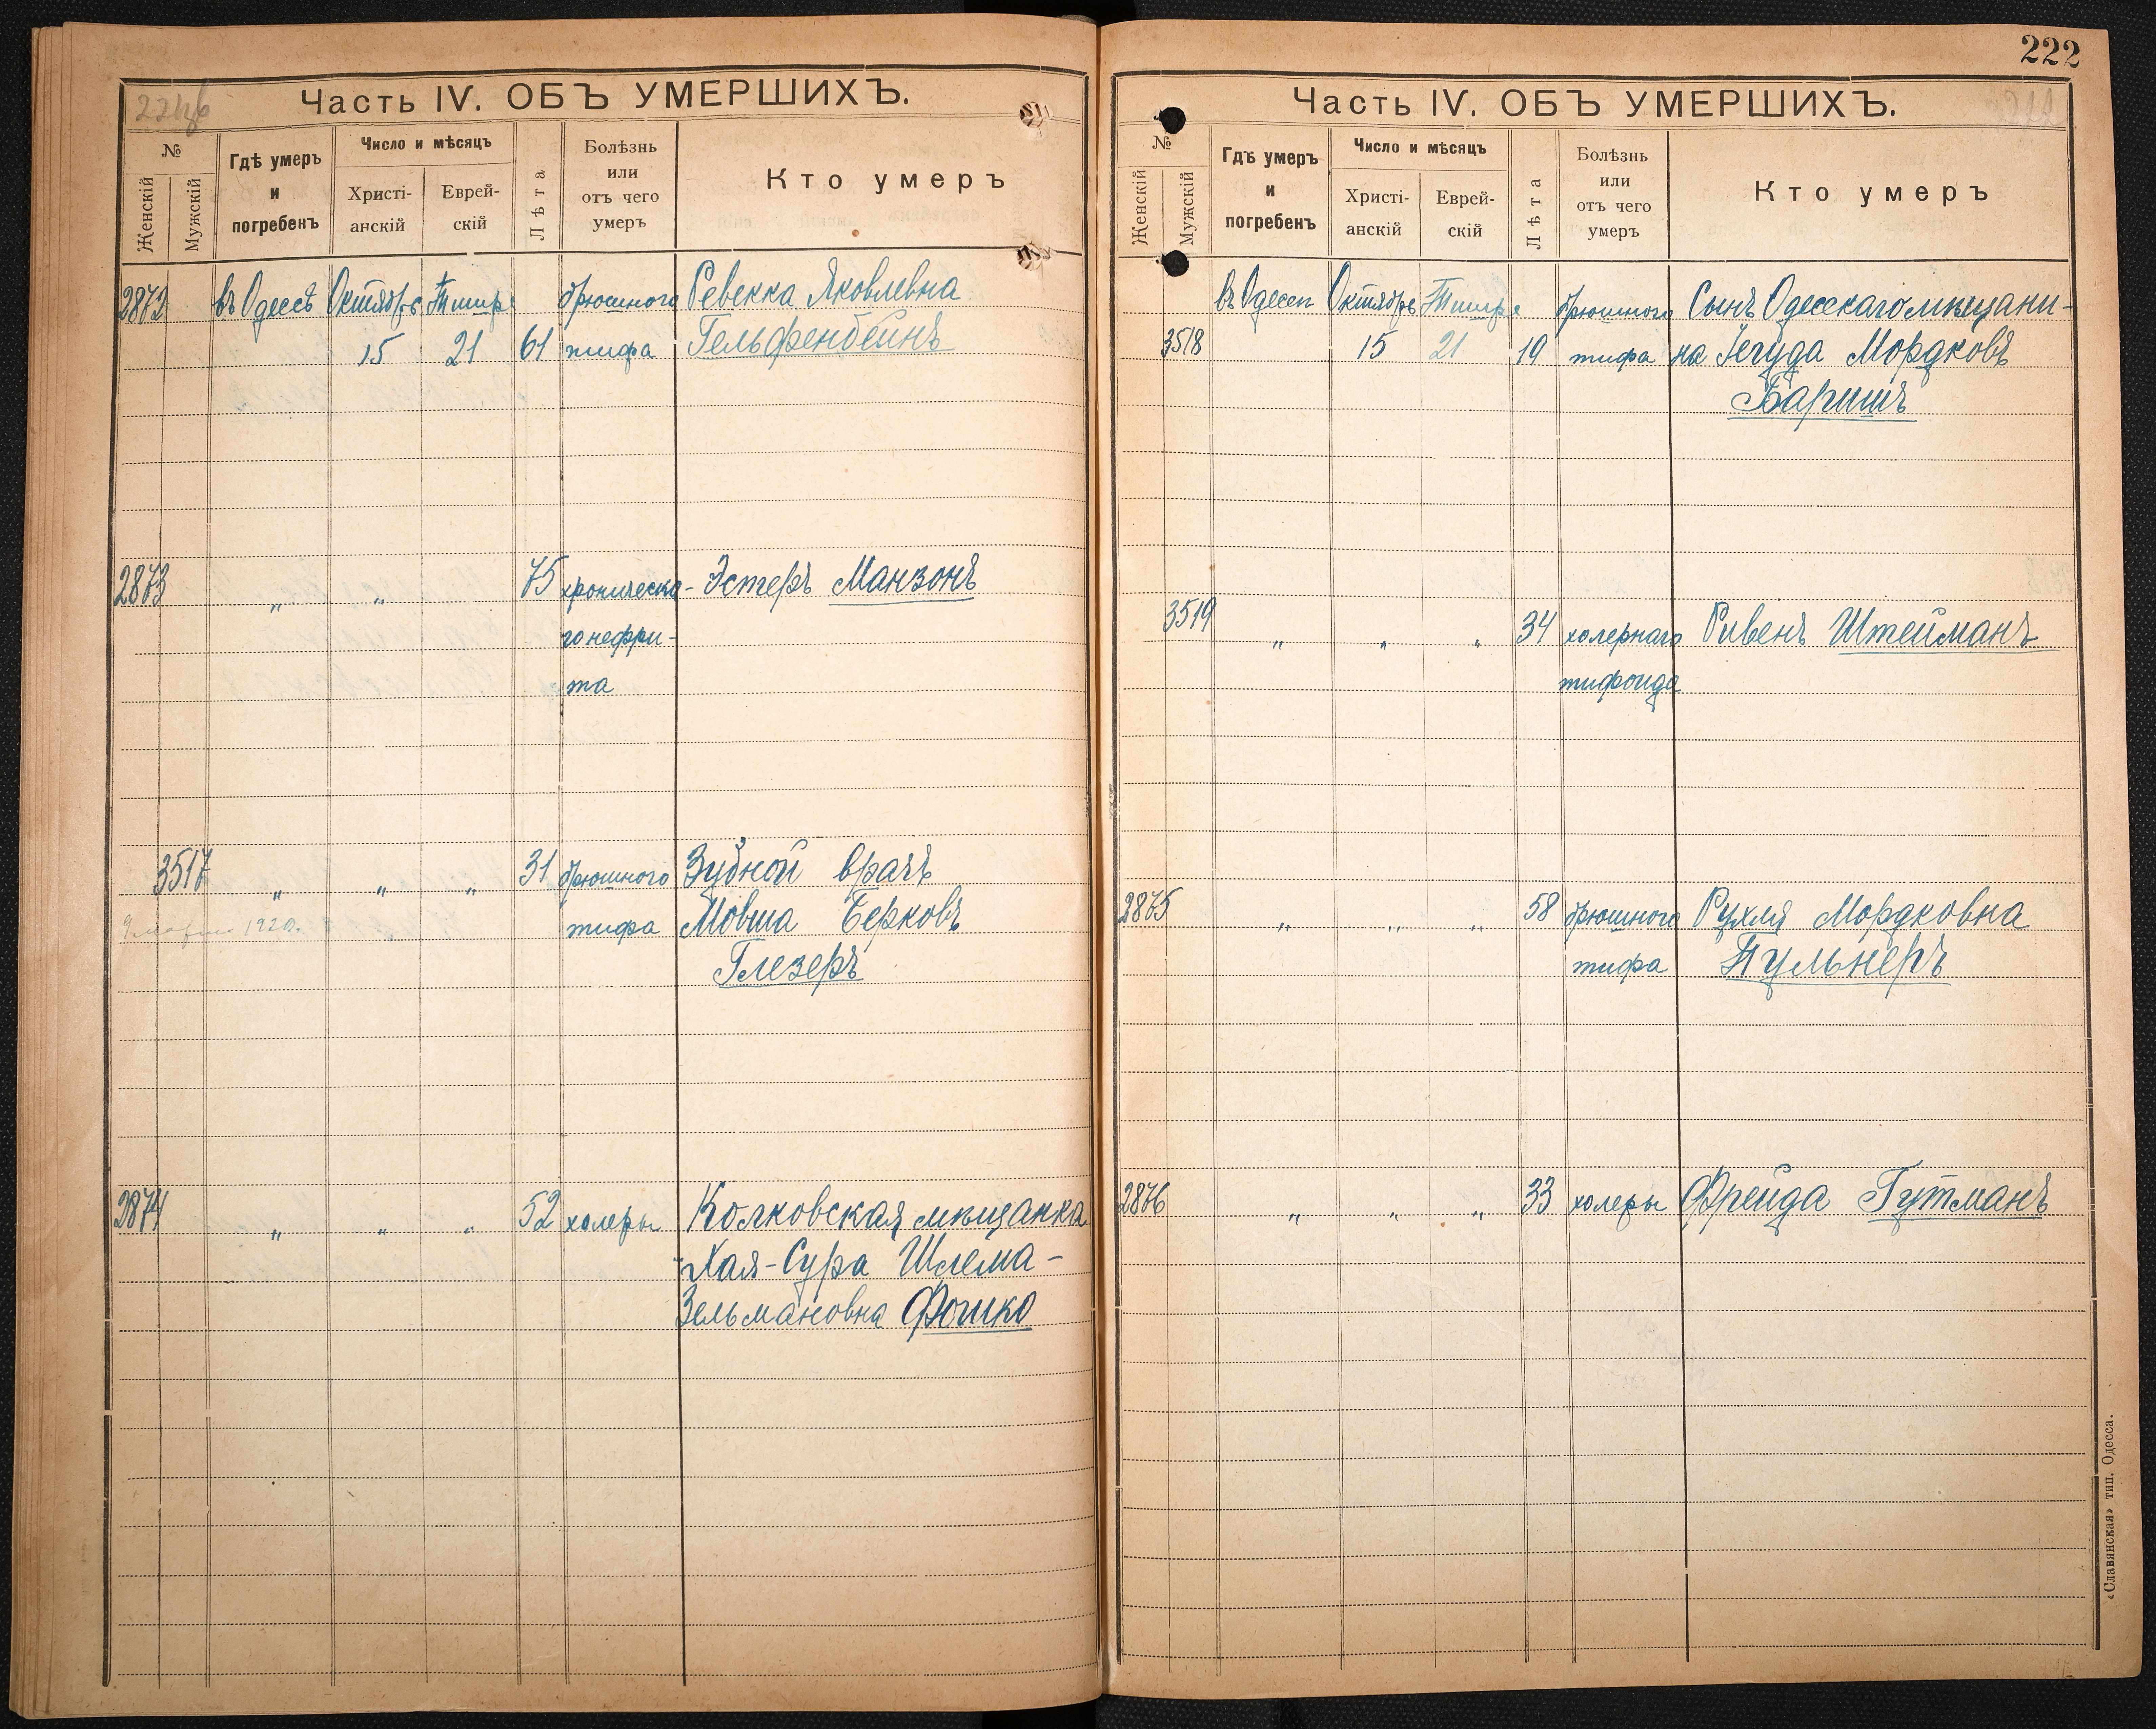 222
Часть IV. ОБЪ УМЕРШИХЪ.
№
Женскій
Мужскій
Гдѣ умеръ
и
погребенъ
Число и мѣсяцъ
Христі-
анскій
Еврей-
скій
Лѣта
Болѣзнь
или
отъ чего
умеръ
Кто умеръ
2872 въ Одессѣ Октябрь Тишре брюшного Ревекка Яковлевна
15 21 61 тифа Гельфенбейнъ
2873 " " 75 хроническа- Эстеръ Манзонъ
го нефри-
та
3517 " " " 31 брюшного Зубной врачъ
1920. тифа Мовша Берковъ
Глезеръ
2874 " " " 52 холеры Колковская мѣщанка
Хая-Сура Шлема-
Зельмановна
Часть IV. ОБЪ УМЕРШИХЪ.
№
Женскій
Мужскій
Гдѣ умеръ
и
погребенъ
Число и мѣсяцъ
Христі-
анскій
Еврей-
скій
Лѣта
Болѣзнь
или
отъ чего
умеръ
Кто умеръ
въ Одессѣ Октябрь Тишре брюшного Сынъ Одесскаго мѣщани-
3518 15 21 19 тифа на Іегуда Мордковъ
Баришъ
3519 " " " 34 холернаго Ривенъ Штейманъ
тифоида
2875 " " " 58 брюшного Рухля Мордковна
тифа Пульнеръ
2876 " " " 33 холеры Фрейда Гутманъ
«Славянская» тип. Одесса.